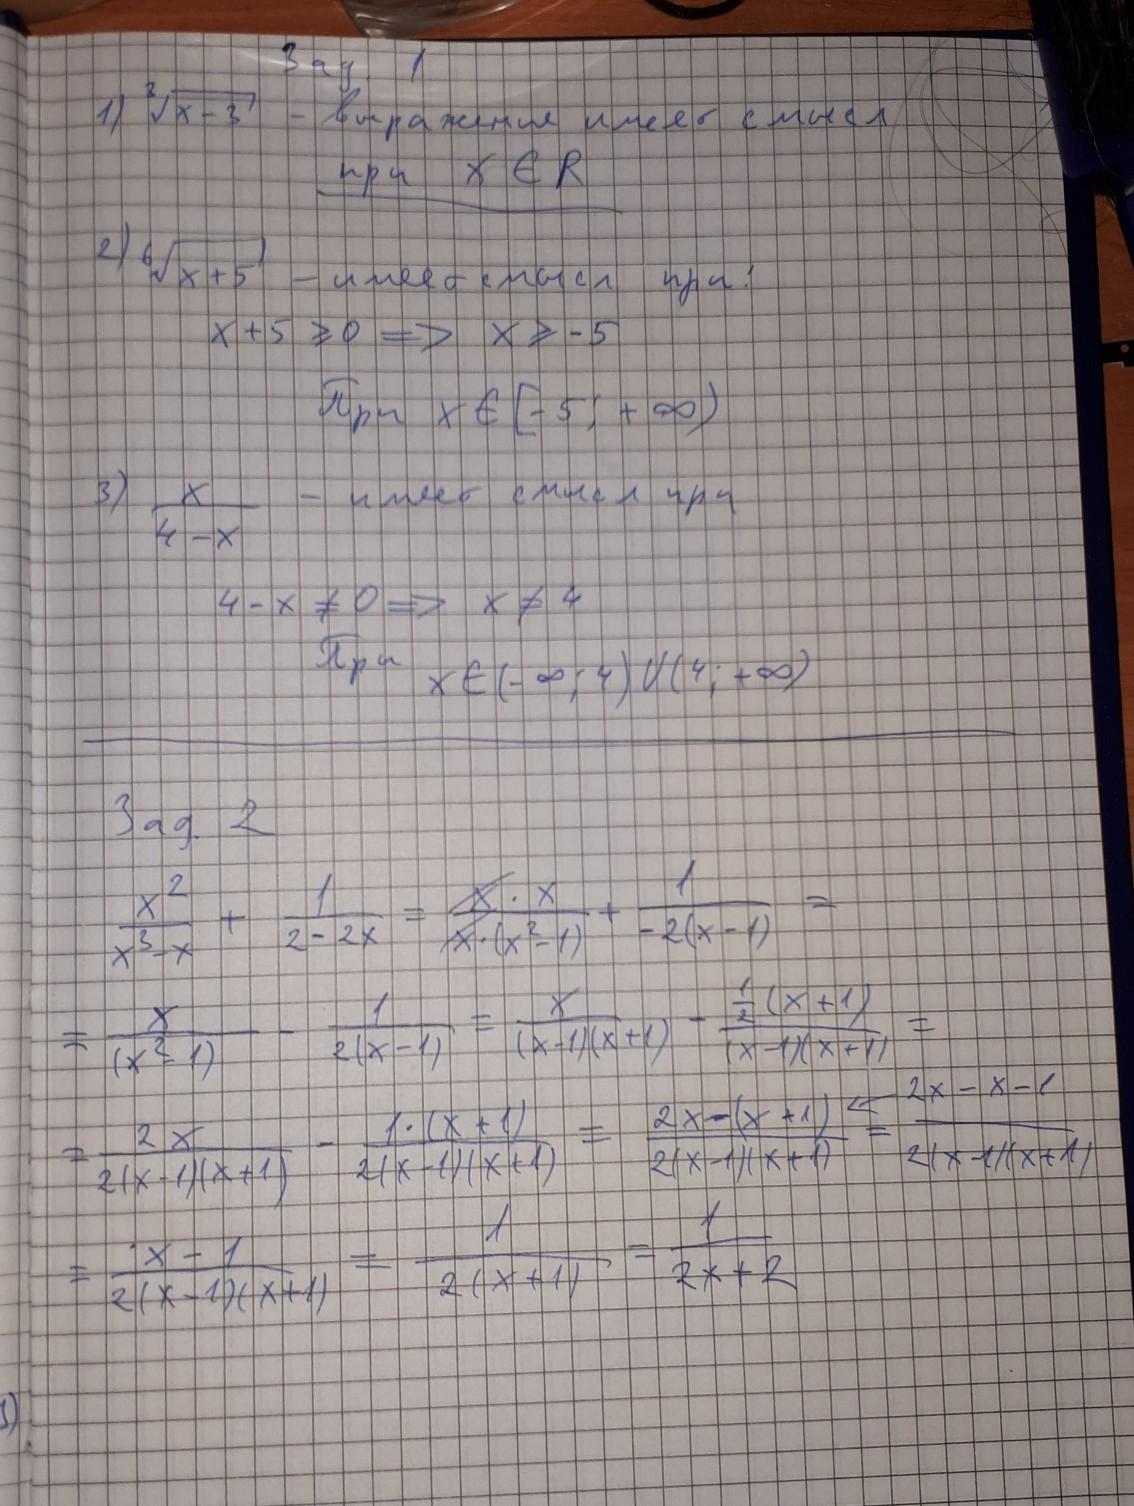 Зад. 1
1) ∛(x-3) - выражение имеет смысл
при x ∈ R
2) ⁶√(x+5) - имеет смысл при:
x+5 ⩾ 0 => x ⩾ -5
При x ∈ [-5; +∞)
3) x/(4-x) - имеет смысл при
4-x ≠ 0 => x ≠ 4
При x ∈ (-∞; 4) U (4; +∞)
Зад. 2
x²/(x³-x) + 1/(2-2x) = (x·x)/(x·(x²-1)) + 1/(-2(x-1)) =
= x/(x²-1) - 1/(2(x-1)) = x/((x-1)(x+1)) - (1/2(x+1))/((x-1)(x+1)) =
= 2x/(2(x-1)(x+1)) - (1·(x+1))/(2(x-1)(x+1)) = (2x-(x+1))/(2(x-1)(x+1)) = (2x-x-1)/(2(x-1)(x+1))
= (x-1)/(2(x-1)(x+1)) = 1/(2(x+1)) = 1/(2x+2)